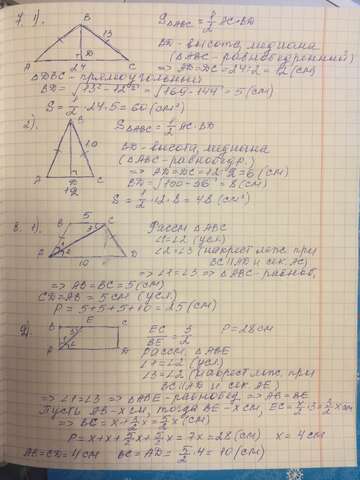 7. 1).
B
13
A
D
C
24
S△ABC = 1/2 AC·BD
BD - высота, медиана
(△ABC - равнобедренный)
=> AD=DC=24:2=12(см)
△DBC - прямоугольный
BD = √13²-12² = √169-144 = 5 (см)
S = 1/2·24·5 = 60 (см²)
2).
B
10
A
D
C
12
S△ABC = 1/2 AC·BD
BD - высота, медиана
(△ABC - равнобедр.)
=> AD=DC=12:2=6(см)
BD = √100-36 = 8 (см)
S = 1/2·12·8 = 48 (см²)
8. 1).
B
5
C
3
1
2
A
10
D
Рассм △ABC
∠1=∠2 (усл)
∠2=∠3 (накрест леж. при
BC||AD и сек AC)
=> ∠1=∠3 => △ABC - равноб.
=> AB=BC=5(см)
CD=AB=5см (усл)
P=5+5+5+10=25(см)
2).
B
E
C
3
1
2
A
D
EC/BE = 3/2
P=28см
Рассм. △ABE
∠1=∠2 (усл)
∠3=∠2 (накрест леж. при
BC||AD и сек AE)
=> ∠1=∠3 => △ABE - равнобед. => AB=BE
Пусть AB-x см, тогда BE-x см, EC=x/2·3=3/2x см
=> BC=x+3/2x=5/2x(см)
P=x+x+5/2x+5/2x=7x=28(см) x=4см
AB=CD=4см BC=AD=5/2·4=10(см)